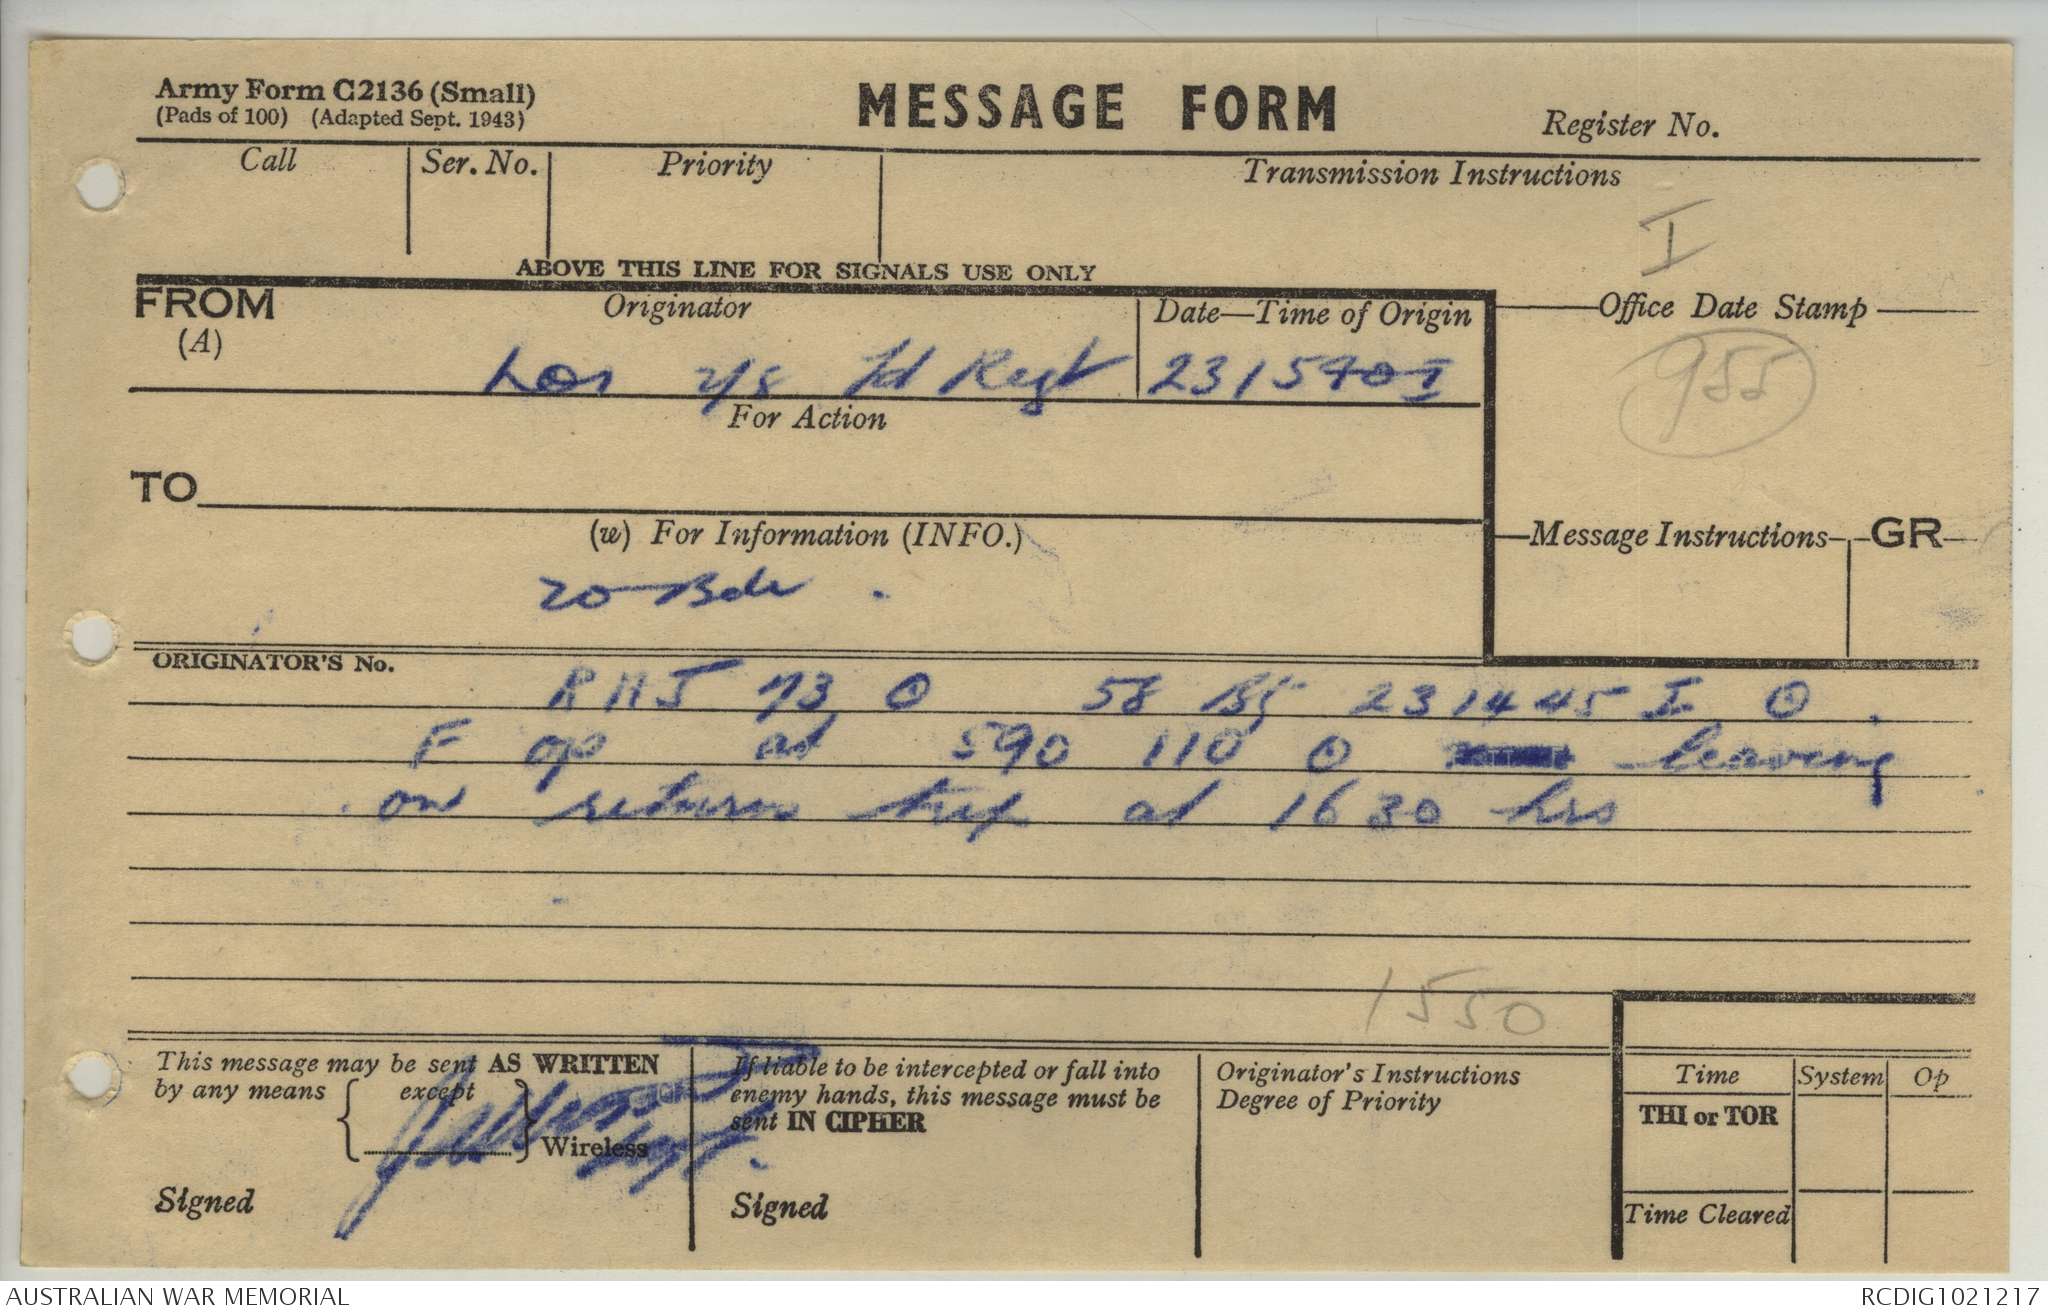 Army Form C2136 (Small)
(Pads of 100) (Adapted Sept. 1943)
MESSAGE FORM
Register No.
Call
Ser. No.
Priority
Transmission Instructions
I
ABOVE THIS LINE FOR SIGNALS USE ONLY
FROM
(A)
Originator
Date—Time of Origin
Office Date Stamp
LO⊙1 2/8 Fd Regt
231540 I
955
For Action
TO
(w) For Information (INFO.)
Message Instructions
GR
20 Bde .
ORIGINATOR'S No.
RHJ 73 ⊙ 58 Bty 231445 I ⊙
F op at 590 110 ⊙ leaving
on return trip at 1630 hrs
1550
This message may be sent AS WRITTEN
by any means { except } Wireless
Signed
If liable to be intercepted or fall into
enemy hands, this message must be
sent IN CIPHER
Signed
Originator's Instructions
Degree of Priority
Time
System
Op
THI or TOR
Time Cleared
AUSTRALIAN WAR MEMORIAL
RCDIG1021217